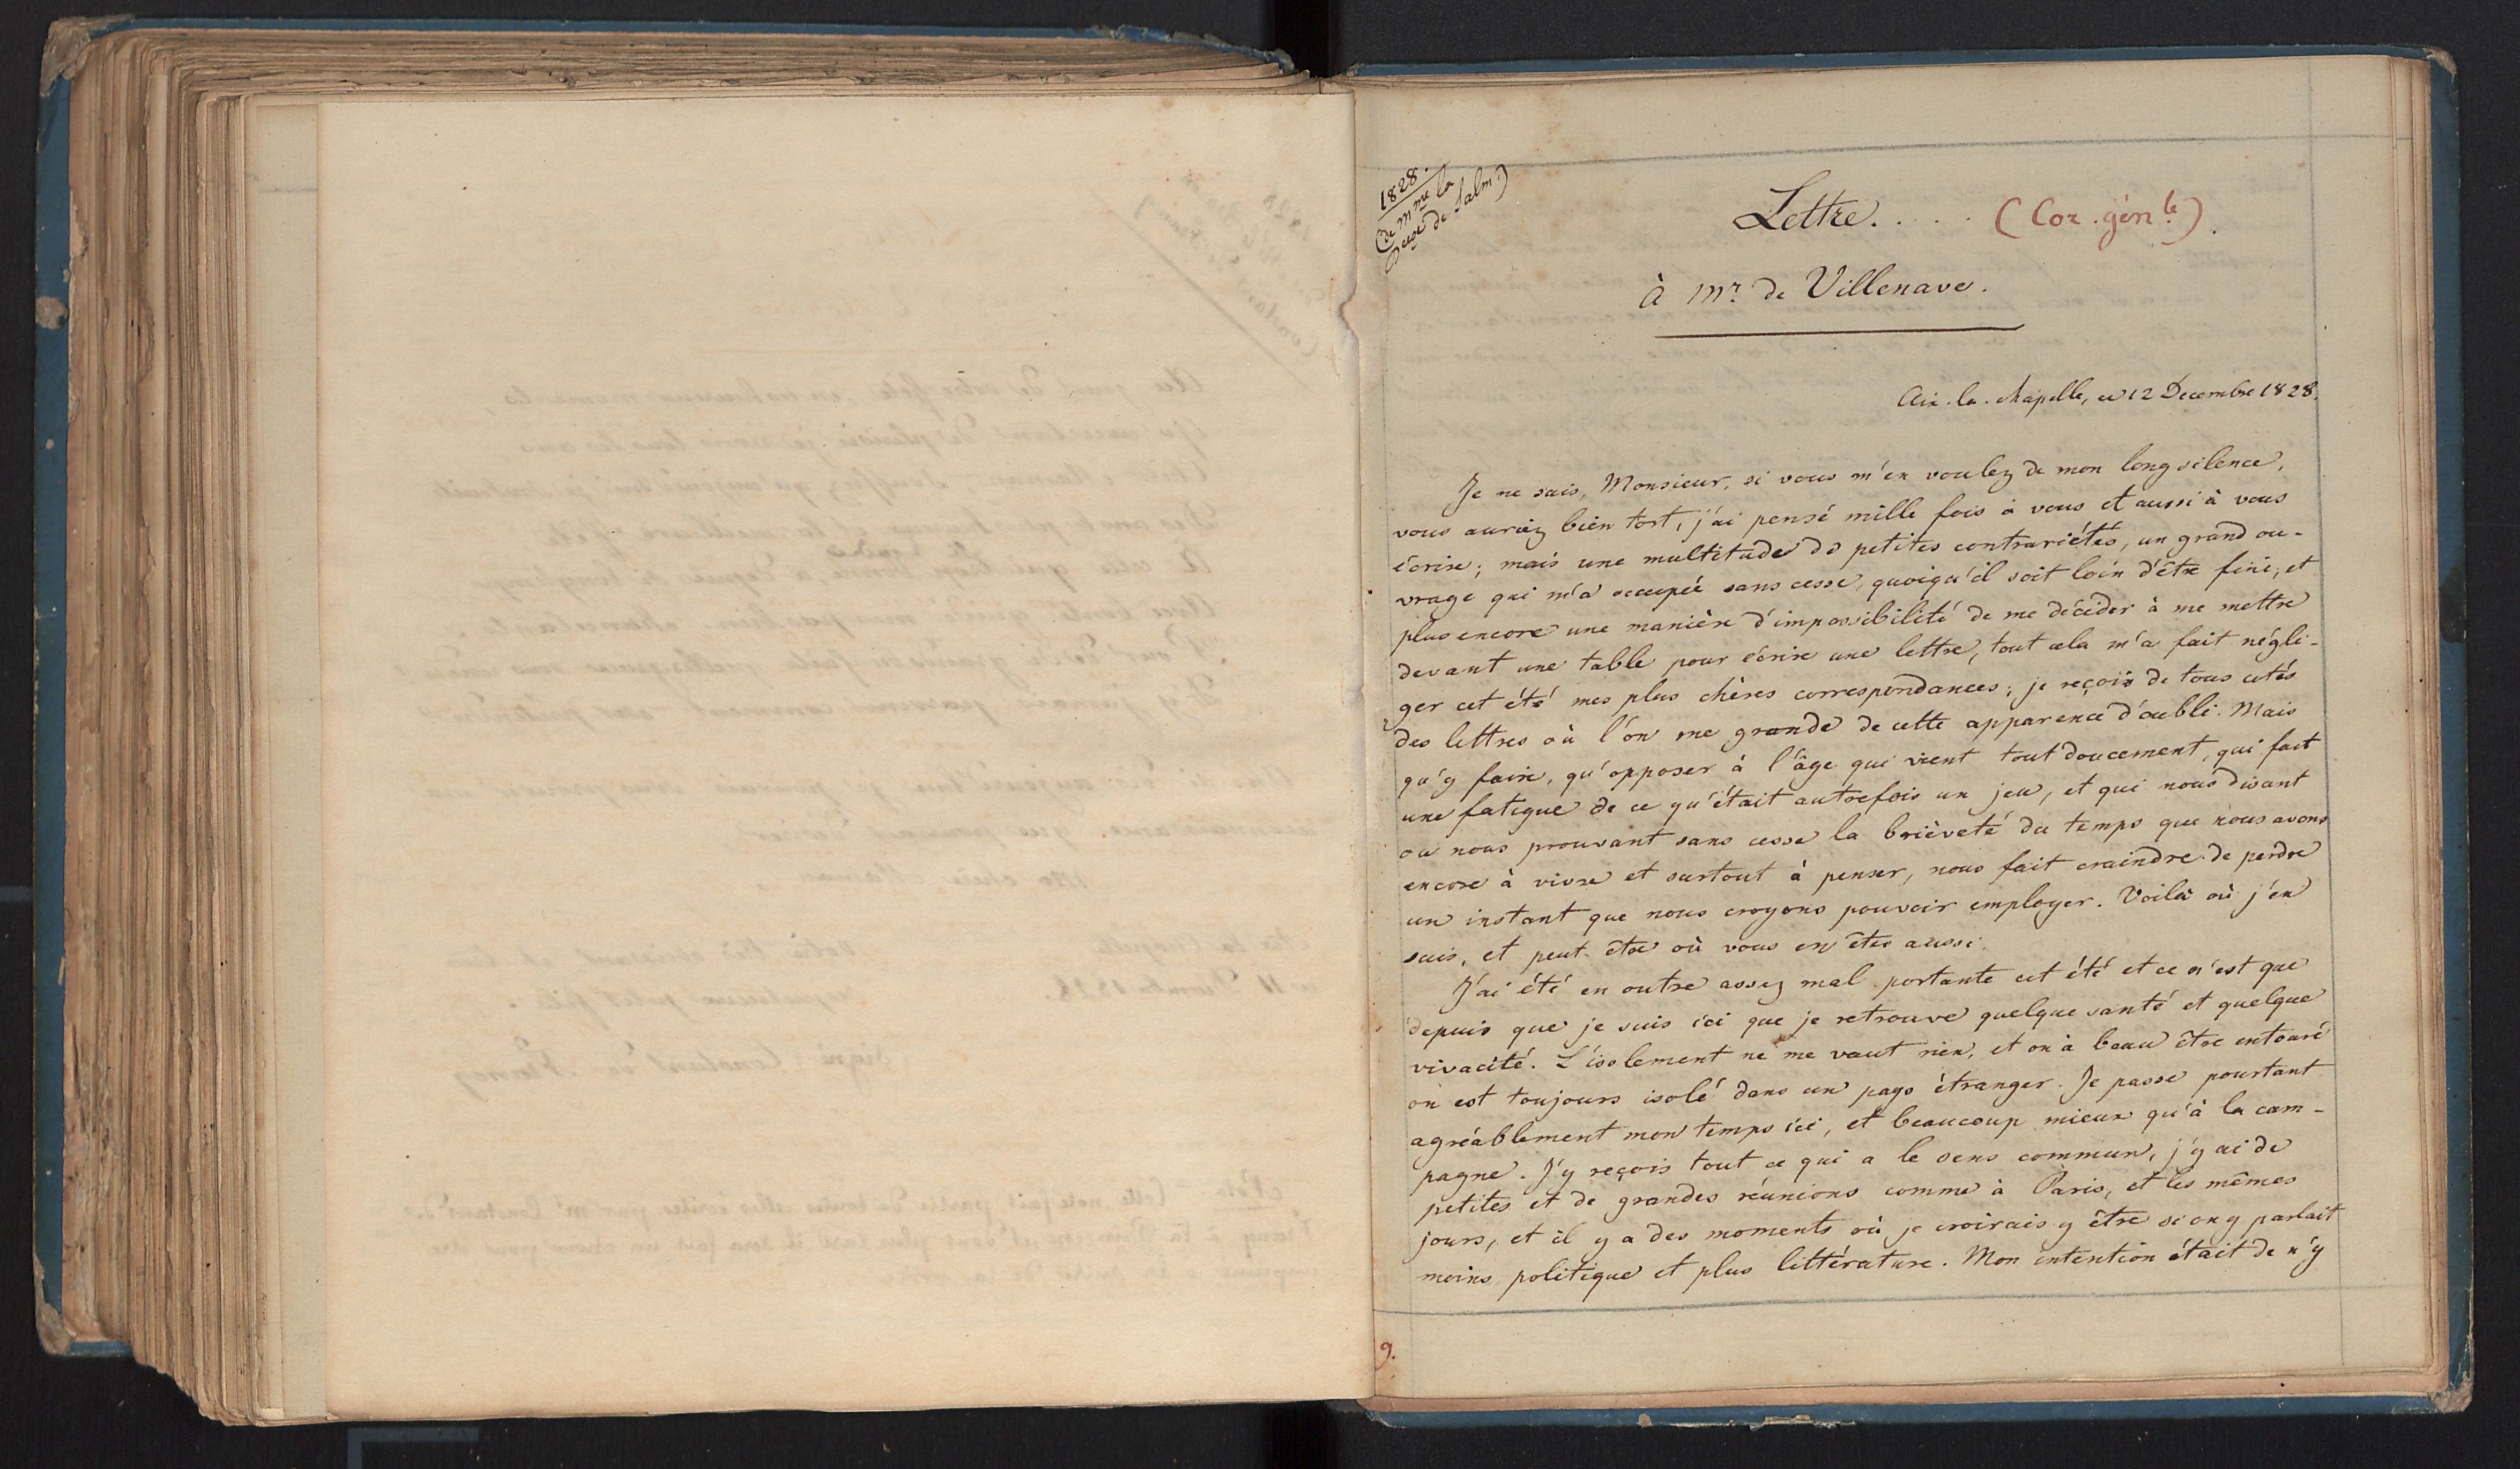 1828.
(de Mme la
Psse de Salm.)
Lettre. . . . . (Cor. génle).
à Mr. de Villenave.
Aix-la-chapelle, ce 12 Decembre 1828.
Je ne sais, Monsieur, si vous m'en voulez de mon long silence,
vous auriez bien tort, j'ai pensé mille fois à vous et aussi à vous
écrire; mais une multitude de petites contrariétés, un grand ou-
vrage qui m'a occupée sans cesse, quoiqu'il soit loin d'être fini, et
plus encore une manière d'impossibilité de me décider à me mettre
devant une table pour écrire une lettre, tout cela m'a fait négli-
ger cet été mes plus chères correspondances; je reçois de tous cotés
des lettres où l'on me gronde de cette apparence d'oubli. Mais
qu'y faire, qu'opposer à l'âge qui vient tout doucement, qui fait
une fatigue de ce qu'était autrefois un jeu, et qui nous disant
ou nous prouvant sans cesse la brièveté du temps que nous avons
encore à vivre et surtout à penser, nous fait craindre de perdre
un instant que nous croyons pouvoir employer. Voilà où j'en
suis, et peut-être où vous en êtes aussi.
J'ai été en outre assez mal portante cet été et ce n'est que
depuis que je suis ici que je retrouve quelque santé et quelque
vivacité. L'isolement ne me vaut rien, et on à beau être entouré
on est toujours isolé dans un pays étranger. Je passe pourtant
agréablement mon temps ici, et beaucoup mieux qu'à la cam-
pagne. J'y reçois tout ce qui a le sens commun, j'y ai de
petites et de grandes réunions comme à Paris, et les mêmes
jours, et il y a des moments où je croirais y être si on y parlait
moins politique et plus littérature. Mon intention était de n'y
9.